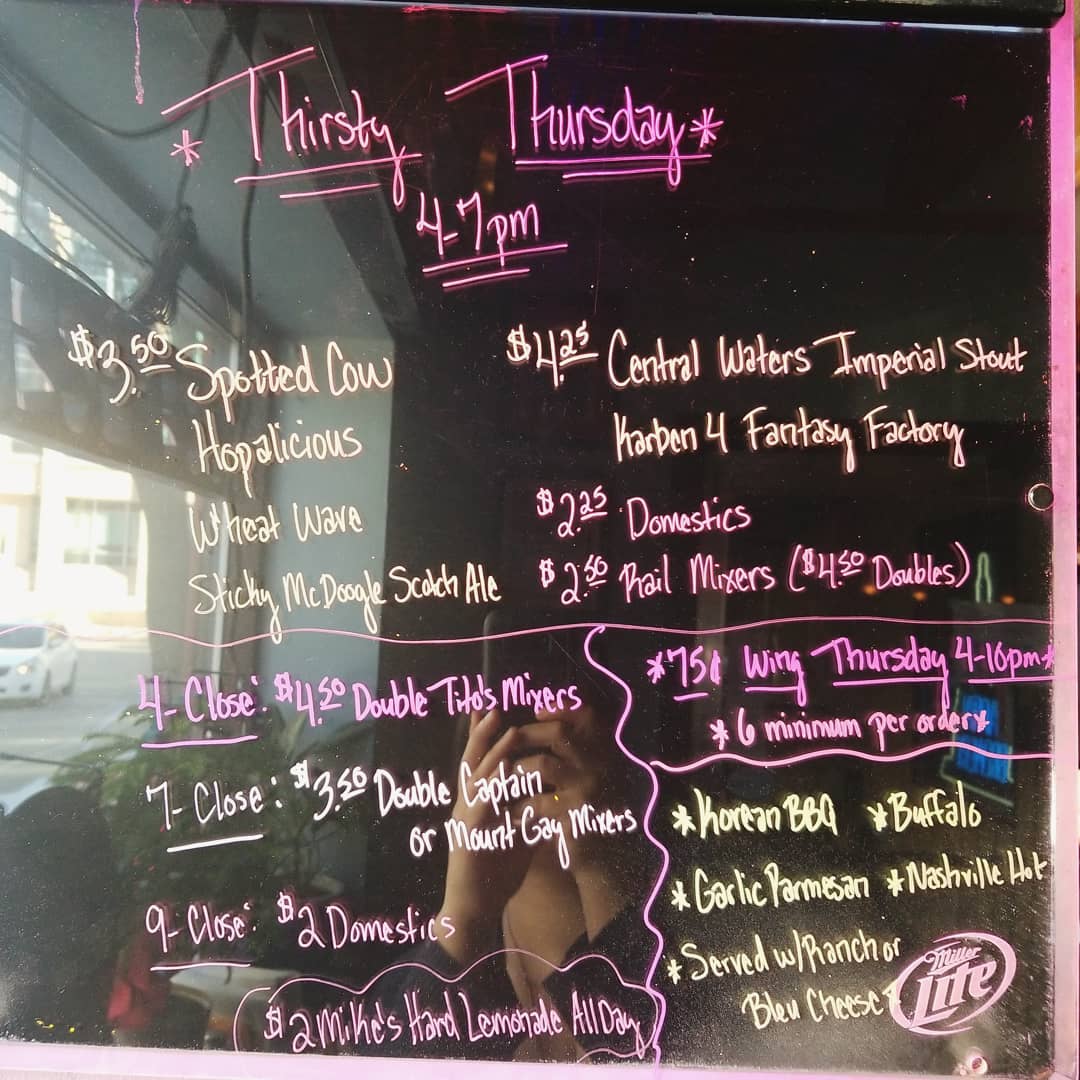 * Thirsty Thursday *
4-7pm
$3.50 Spotted Cow
Hopalicious
Wheat Wave
Sticky McDoogle Scotch Ale
$4.25 Central Waters Imperial Stout
Karben 4 Fantasy Factory
$2.25 Domestics
$2.50 Rail Mixers ($4.50 Doubles)
4-Close: $4.50 Double Tito's Mixers
7-Close: $3.50 Double Captain
or Mount Gay Mixers
9-Close: $2 Domestics
$2 Mike's Hard Lemonade All Day
*75¢ Wing Thursday 4-10pm*
*6 minimum per order*
*Korean BBQ *Buffalo
*Garlic Parmesan *Nashville Hot
*Served w/Ranch or
Bleu Cheese
Miller
Lite